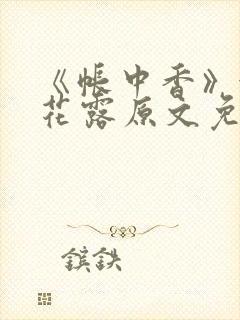 《帐中香》
花露原文免
镔铁